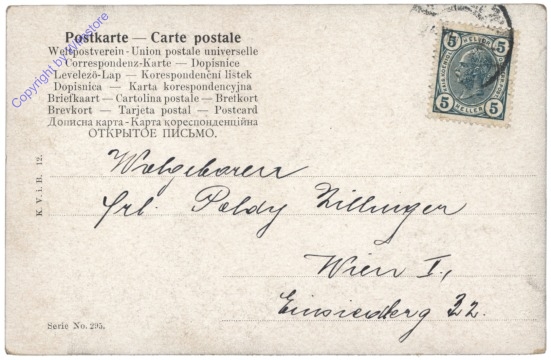 Postkarte — Carte postale
Weltpostverein - Union postale universelle
Correspondenz-Karte — Dopisnice
Levelező-Lap — Korespondenční listek
Dopisnica — Karta korespondencyjna
Briefkaart — Cartolina postale — Bretkort
Brevkort — Tarjeta postal — Postcard
Дописна карта - Карта кореспонденційна
ОТКРЫТОЕ ПИСЬМО.
5 HELLER 5
5 HELLER 5
K. V. i. B. 12.
Wolgeboren
Frl. Poldy Zillinger
Wien I.,
22.
Serie No. 295.